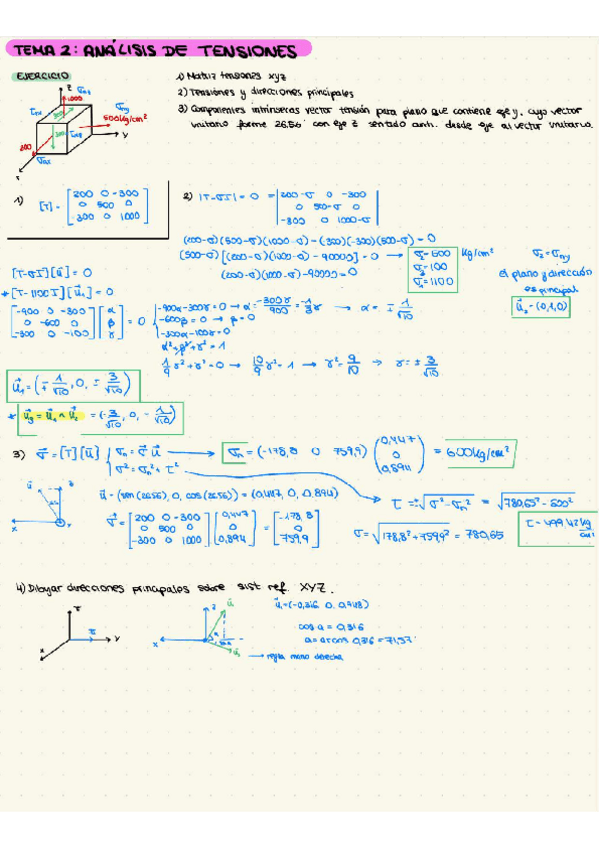 TEMA 2: ANÁLISIS DE TENSIONES
EJERCICIO
1) Matriz tensiones xyz
2) Tensiones y direcciones principales
3) Componentes intrínsecas vector tensión para plano que contiene eje y, cuyo vector
unitario forme 26.56° con eje z sentido anti. desde eje al vector unitario.
z
1000
500kg/cm²
y
200
1) [T] = [200 0 -300
0 500 0
-300 0 1000]
2) |T-σI| = 0 = |200-σ 0 -300
0 500-σ 0
-300 0 1000-σ|
(200-σ)(500-σ)(1000-σ) - (300)(-300)(500-σ) = 0
(500-σ)[(200-σ)(1000-σ) - 90000] = 0
(200-σ)(1000-σ) - 90000 = 0
σ₂ = 500 kg/cm²
σ₃ = 100
σ₁ = 1100
σ₂ = σny
el plano y dirección
es principal
u₂ = (0,1,0)
[T-σI][u] = 0
* [T-1100I][u₁] = 0
[-900 0 -300
0 -600 0
-300 0 -100] [α β γ] = 0
-900α - 300γ = 0 → α = -300γ/900 = -1/3 γ → α = ∓ 1/√10
-600β = 0 → β = 0
-300α - 100γ = 0
α² + β² + γ² = 1
1/9 γ² + γ² = 0 → 10/9 γ² = 1 → γ² = 9/10 → γ = ± 3/√10
u₁ = (∓ 1/√10, 0, ± 3/√10)
* u₃ = u₁ ∧ u₂ = (-3/√10, 0, -1/√10)
3) σ = [T][u] { σn = σ u → σn = (-178,8 0 759,9) (0,447 0 0,894) = 600kg/cm²
σ² = σn² + τ²
u = (sen(26.56), 0, cos(26.56)) = (0,447, 0, 0,894)
τ = ±√σ² - σn² = √780,65² - 600²
σ = [200 0 -300
0 500 0
-300 0 1000] [0,447 0 0,894] = [-178,8 0 759,9]
σ = √178,8² + 759,9² = 780,65
τ = 499,42 kg/cm²
4) Dibujar direcciones principales sobre sist ref. XYZ.
u₁ = (-0,316 0 0,948)
cos a = 0,316
a = arcos 0,316 = 71,57°
→ regla mano derecha